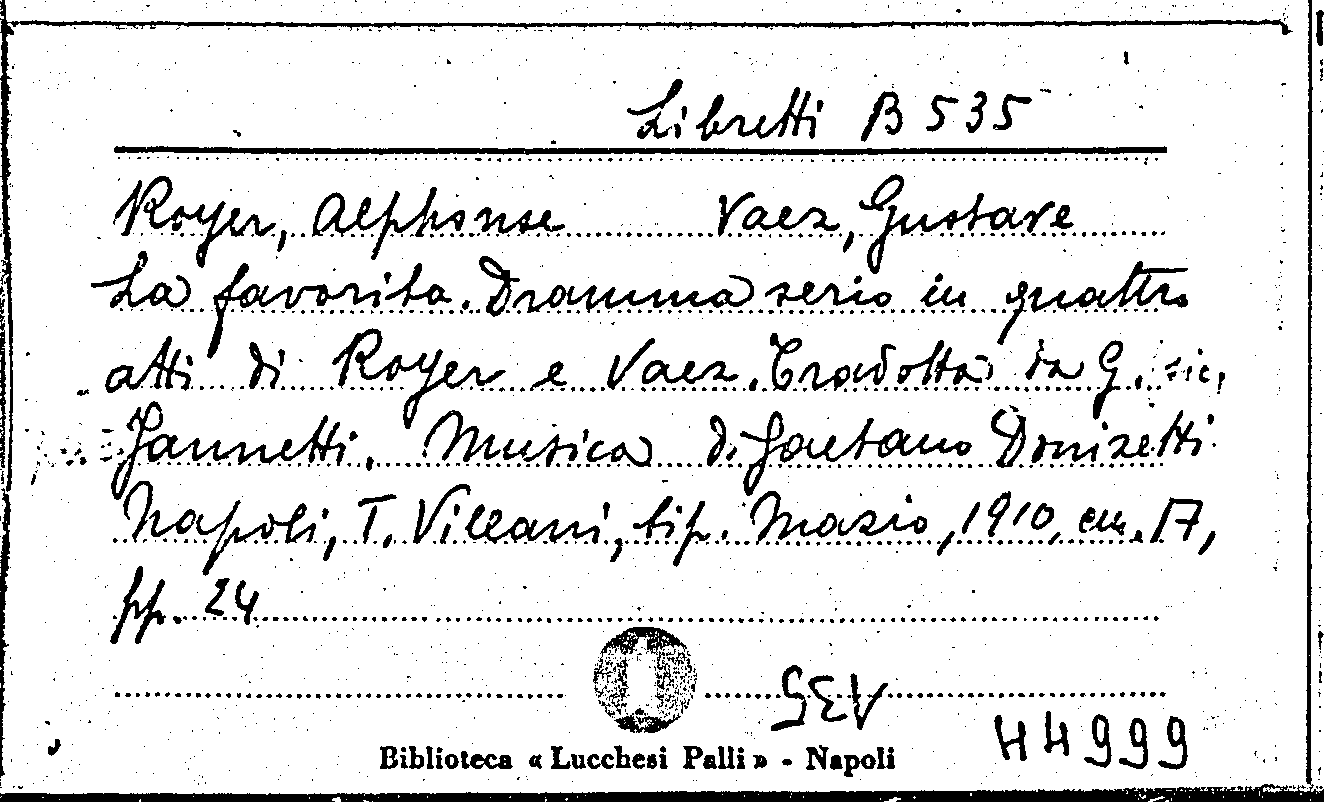 Libretti B 535
Royer, Alphonse Vaez, Gustave
La favorita. Dramma serio in quattro
atti di Royer e Vaez. Tradotta da G. sic,
Jannetti. Musica di Gaetano Donizetti
Napoli, T. Villani, tip. Mazio, 1910, cm. 17,
pp. 24
H4999
Biblioteca « Lucchesi Palli » - Napoli